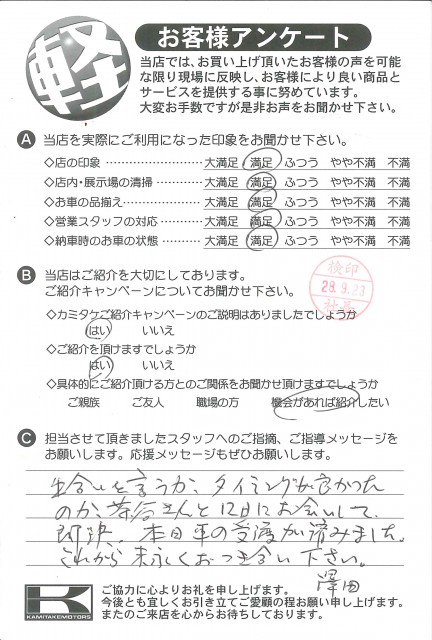 軽
お客様アンケート
当店では、お買い上げ頂いたお客様の声を可能
な限り現場に反映し、お客様により良い商品と
サービスを提供する事に努めています。
大変お手数ですが是非お声をお聞かせ下さい。
A 当店を実際にご利用になった印象をお聞かせ下さい。
◇店の印象 ………………… 大満足 満足 ふつう やや不満 不満
◇店内・展示場の清掃………… 大満足 満足 ふつう やや不満 不満
◇お車の品揃え……………… 大満足 満足 ふつう やや不満 不満
◇営業スタッフの対応 ……… 大満足 満足 ふつう やや不満 不満
◇納車時のお車の状態 ……… 大満足 満足 ふつう やや不満 不満
B 当店はご紹介を大切にしております。
ご紹介キャンペーンについてお聞かせ下さい。
検印
28.9.23
◇カミタケご紹介キャンペーンのご説明はありましたでしょうか
はい いいえ
◇ご紹介を頂けますでしょうか
はい いいえ
◇具体的にご紹介頂ける方とのご関係をお聞かせ頂けますでしょうか
ご親族 ご友人 職場の方 機会があれば紹介したい
C 担当させて頂きましたスタッフへのご指摘、ご指導メッセージを
お願いします。応援メッセージもぜひお願いします。
出会いと言うか、タイミングが良かった
のか、茶谷さんと12日にお会いして、
即決、本日車の受渡が済みました。
これから末永くおつき合い下さい。
澤田
K
KAMITAKEMOTORS
ご協力に心よりお礼を申し上げます。
今後とも宜しくお引き立てご愛顧の程お願い申し上げます。
またのご来店を心からお待ちしております。